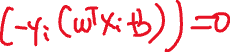 (-yᵢ(ωᵀxᵢ+b))=0